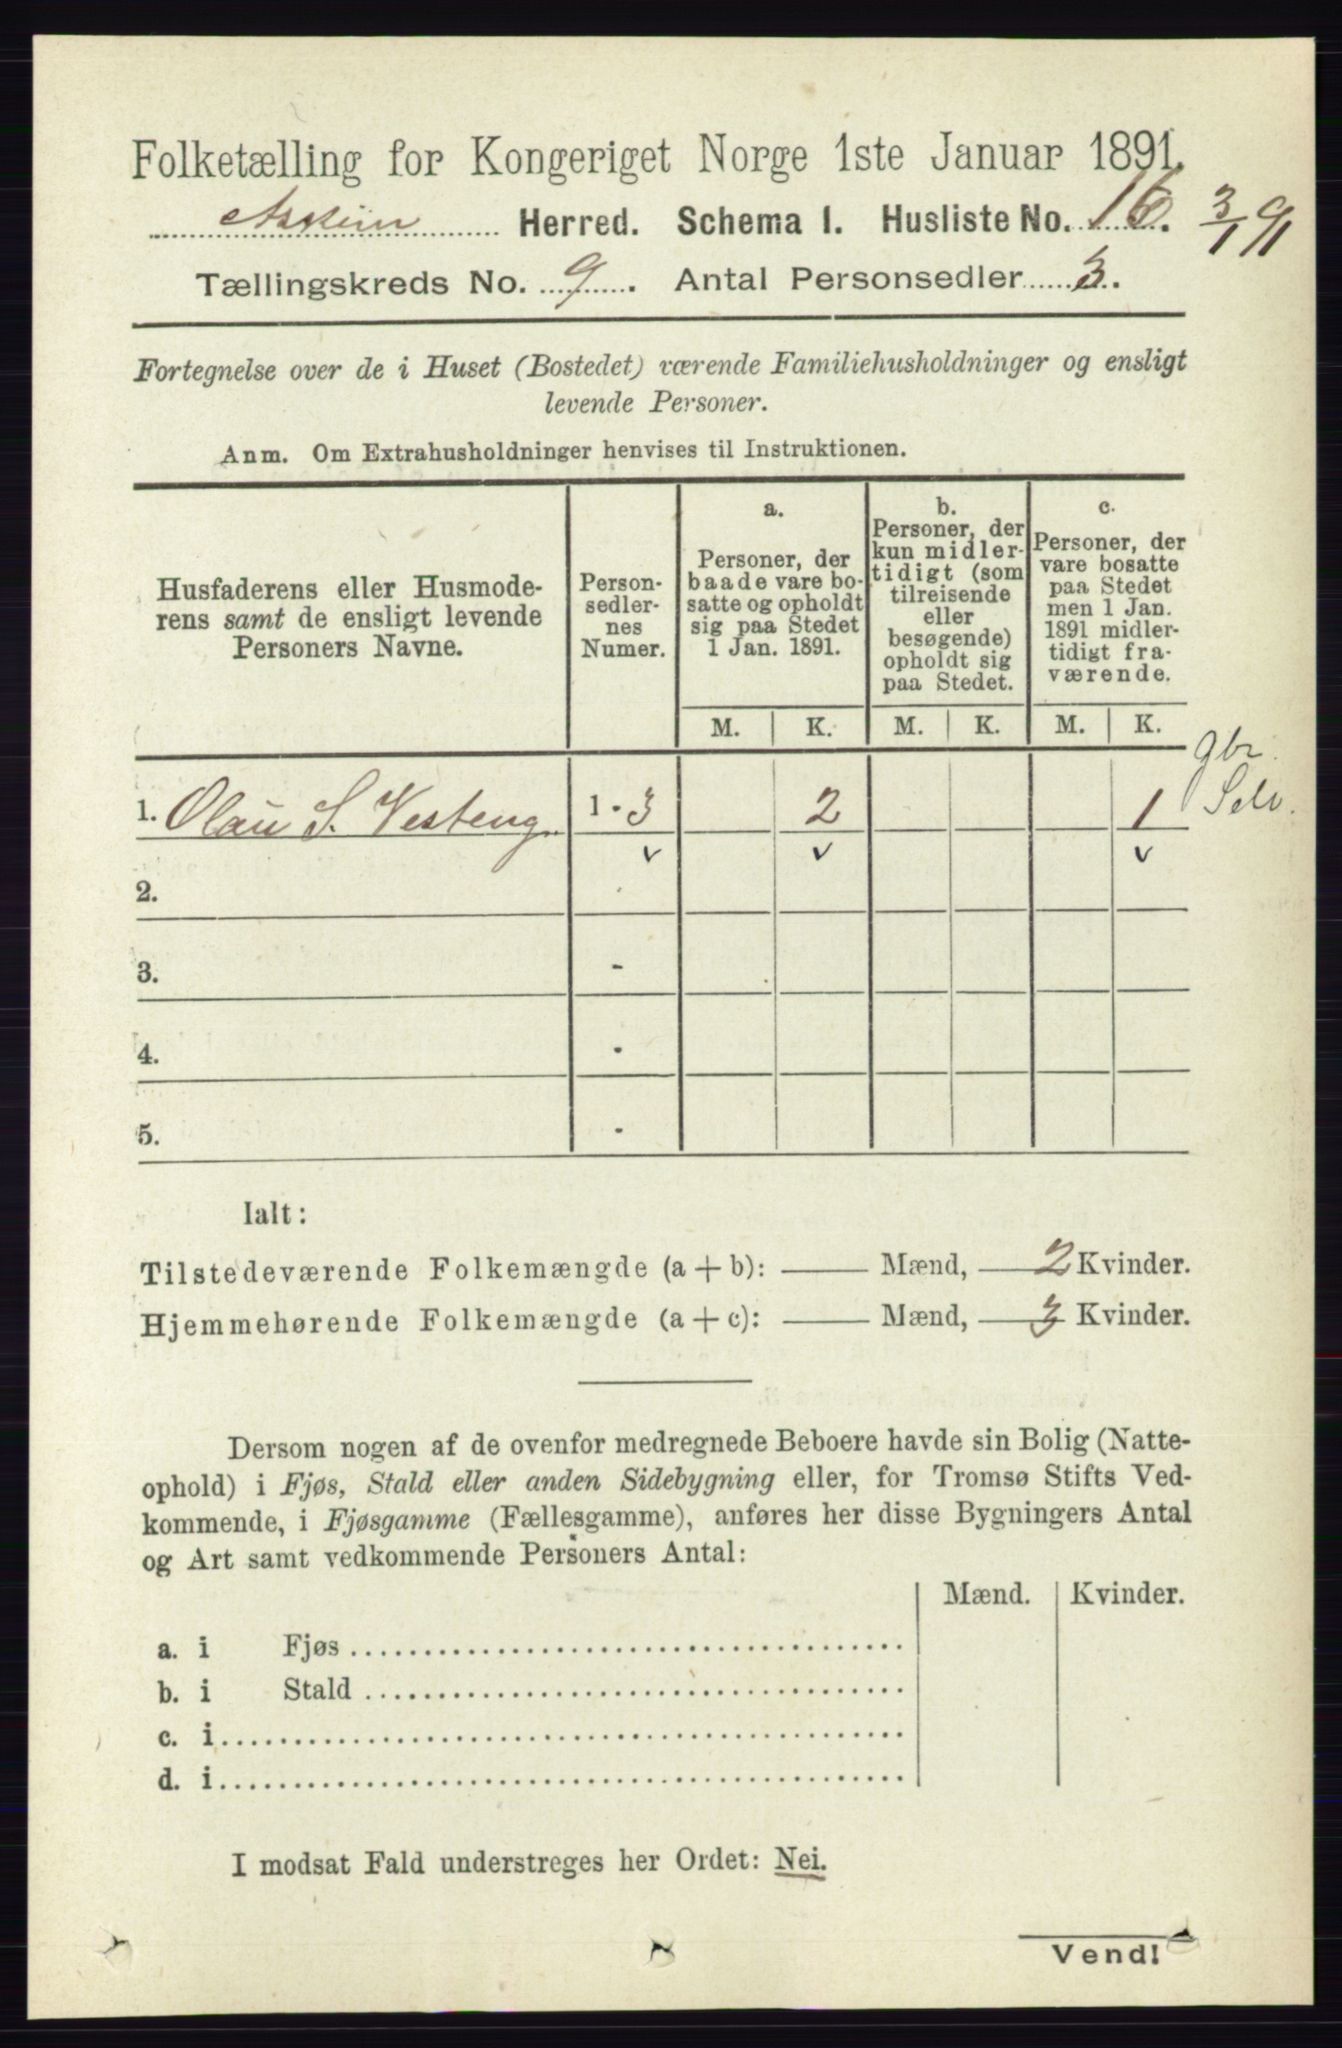 Folketælling for Kongeriget Norge 1ste Januar 1891.
Askim Herred. Schema I. Husliste No. 16. 3/1 91
Tællingskreds No. 9. Antal Personsedler 3.
Fortegnelse over de i Huset (Bostedet) værende Familiehusholdninger og ensligt
levende Personer.
Anm. Om Extrahusholdninger henvises til Instruktionen.
Husfaderens eller Husmode-
rens samt de ensligt levende
Personers Navne.
Person-
sedler-
nes
Numer.
a.
Personer, der
baade vare bo-
satte og opholdt
sig paa Stedet
1 Jan. 1891.
b.
Personer, der
kun midler-
tidigt (som
tilreisende
eller
besøgende)
opholdt sig
paa Stedet.
c.
Personer, der
vare bosatte
paa Stedet
men 1 Jan.
1891 midler-
tidigt fra-
værende.
M. K. M. K. M. K.
gbr.
Selv.
1. Olau S. Vesteng. 1 - 3 2 1
v v v
2.
3. -
4. -
5. -
Ialt:
Tilstedeværende Folkemængde (a + b): — Mænd, 2 Kvinder.
Hjemmehørende Folkemængde (a + c): — Mænd, 3 Kvinder.
Dersom nogen af de ovenfor medregnede Beboere havde sin Bolig (Natte-
ophold) i Fjøs, Stald eller anden Sidebygning eller, for Tromsø Stifts Ved-
kommende, i Fjøsgamme (Fællesgamme), anføres her disse Bygningers Antal
og Art samt vedkommende Personers Antal:
Mænd. Kvinder.
a. i Fjøs
b. i Stald
c. i
d. i
I modsat Fald understreges her Ordet: Nei.
Vend!